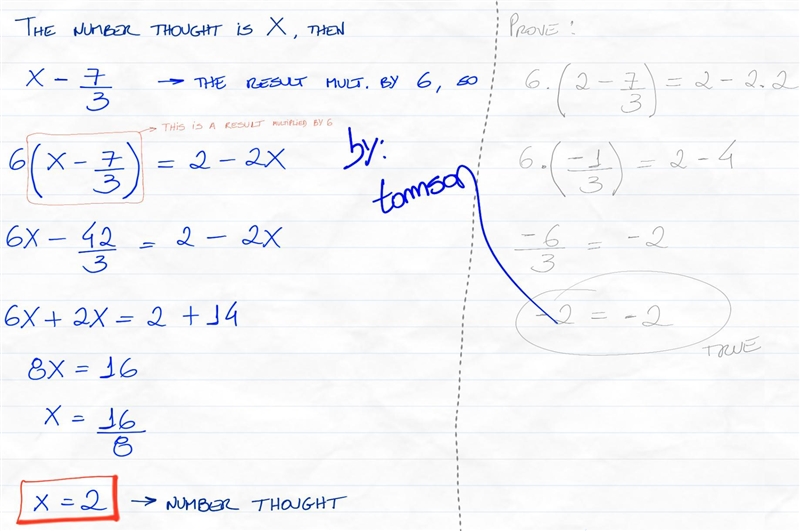 THE NUMBER THOUGHT IS X, THEN
X - 7/3 → THE RESULT MULT. BY 6, SO
→ THIS IS A RESULT MULTIPLIED BY 6
6(X - 7/3) = 2 - 2X
6X - 42/3 = 2 - 2X
6X + 2X = 2 + 14
8X = 16
X = 16/8
X = 2 → NUMBER THOUGHT
by:
tomson
PROVE:
6.(2 - 7/3) = 2 - 2.2
6.(-1/3) = 2 - 4
-6/3 = -2
-2 = -2
TRUE